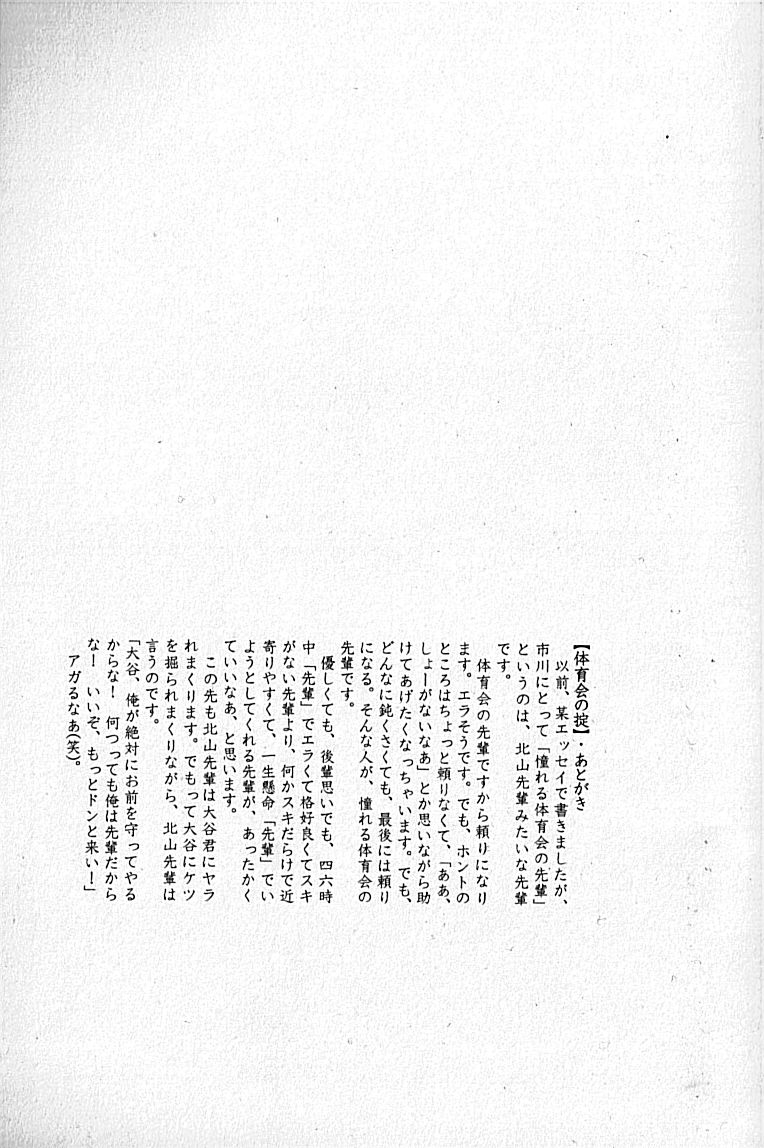 【体育会の掟】・あとがき
　以前、某エッセイで書きましたが、
市川にとって「憧れる体育会の先輩」
というのは、北山先輩みたいな先輩
です。
　体育会の先輩ですから頼りになり
ます。エラそうです。でも、ホントの
ところはちょっと頼りなくて、「ああ、
しょーがないなあ」とか思いながら助
けてあげたくなっちゃいます。でも、
どんなに鈍くさくても、最後には頼り
になる。そんな人が、憧れる体育会の
先輩です。
　優しくても、後輩思いでも、四六時
中「先輩」でエラくて格好良くてスキ
がない先輩より、何かスキだらけで近
寄りやすくて、一生懸命「先輩」でい
ようとしてくれる先輩が、あったかく
ていいなあ、と思います。
　この先も北山先輩は大谷君にヤラ
れまくります。でもって大谷にケツ
を掘られまくりながら、北山先輩は
言うのです。
「大谷、俺が絶対にお前を守ってやる
からな！何つっても俺は先輩だから
な！いいぞ、もっとドンと来い！」
　アガるなあ（笑）。